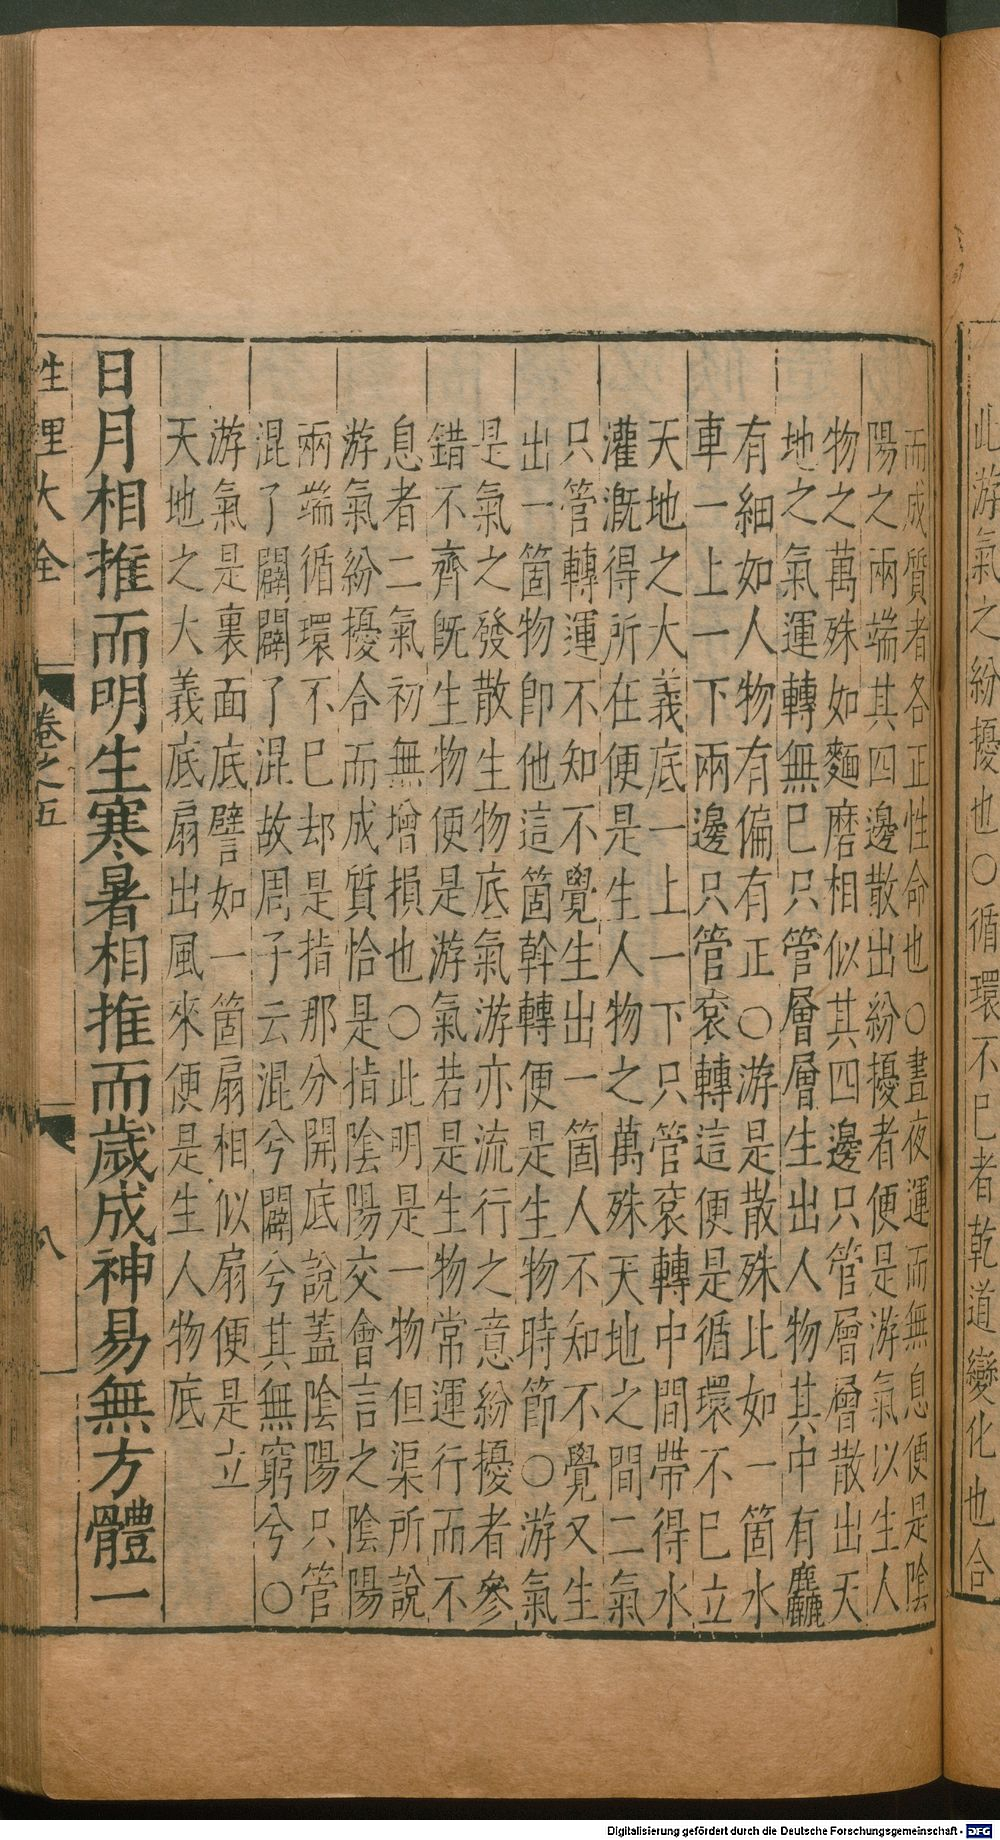 此游氣之紛擾也○循環不已者乾道變化也合
而成質者各正性命也○晝夜運而無息便是陰
陽之兩端其四邊散出紛擾者便是游氣以生人
物之萬殊如麵磨相似其四邊只管層層散出天
地之氣運轉無已只管層層生出人物其中有麤
有細如人物有偏有正○游是散殊此如一箇水
車一上一下兩邊只管袞轉這便是循環不已立
天地之大義底一上一下只管袞轉中間帶得水
灌溉得所在便是生人物之萬殊天地之間二氣
只管轉運不知不覺生出一箇人不知不覺又生
出一箇物卽他這箇斡轉便是生物時節○游氣
是氣之發散生物底氣游亦流行之意紛擾者參
錯不齊旣生物便是游氣若是生物常運行而不
息者二氣初無增損也○此明是一物但渠所說
游氣紛擾合而成質恰是指陰陽交會言之陰陽
兩端循環不已却是指那分開底說蓋陰陽只管
混了闢闢了混故周子云混兮闢兮其無窮兮○
游氣是裏面底譬如一箇扇相似扇便是立
天地之大義底扇出風來便是生人物底
日月相推而明生寒暑相推而歲成神易無方體一
性理大全 卷之五 八
Digitalisierung gefördert durch die Deutsche Forschungsgemeinschaft - DFG